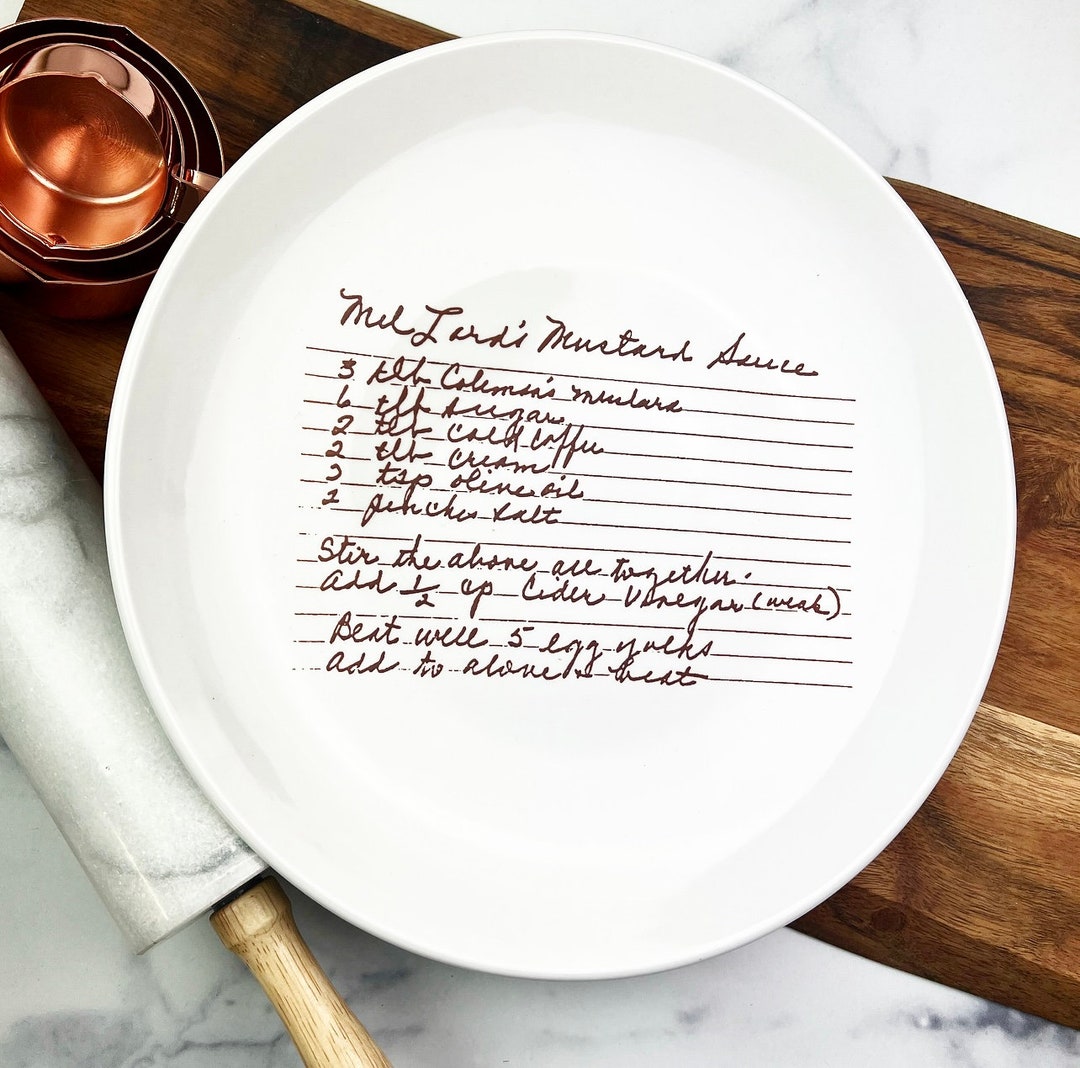 Mel Lord's Mustard Sauce
3 tlb Coleman's mustard
6 tlb sugar
2 tlb Cold Coffee
2 tlb Cream
3 tsp olive oil
2 pinches salt
Stir the above all together.
Add 1/2 cp Cider Vinegar (weak)
Beat well 5 egg yolks
Add to above & beat